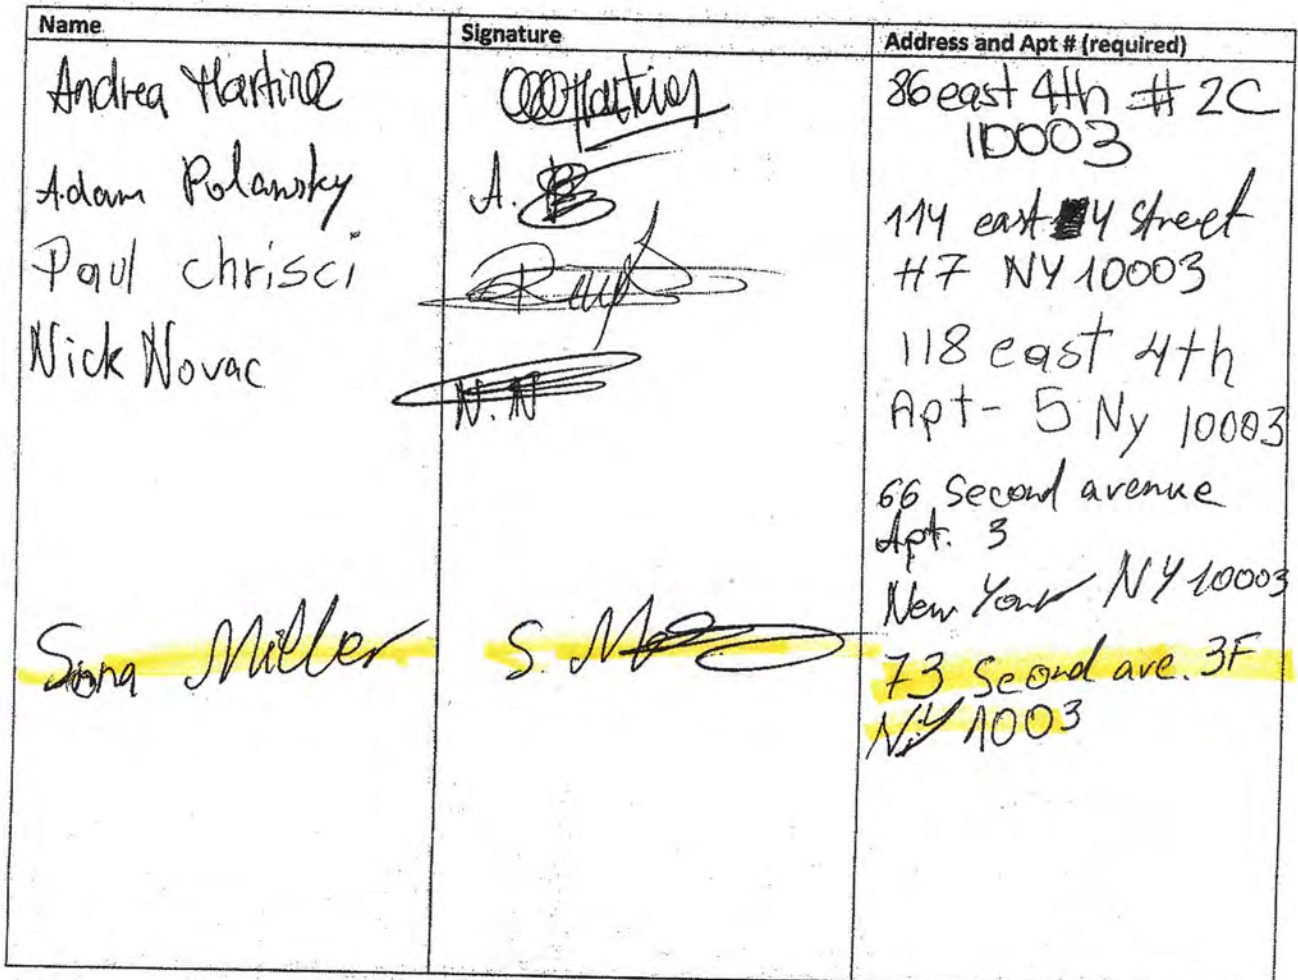 Name Signature Address and Apt # (required)
Andrea Martinez 86 east 4th # 2C
10003
Adam Polansky A. 114 east 4 street
#7 NY 10003
Paul chrisci 118 east 4th
Apt- 5 Ny 10003
Nick Novac N.N 66 Second avenue
Apt. 3
New York NY 10003
Sona Miller S. 73 Second ave. 3F
NY 1003